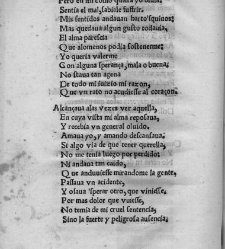 Pero en mi como quiera yo
Sentia el mal, sabiale sufrir.
Mis sentidos andauan harto
Mas quedauan algun gusto todauia.
El alma parescia
Que alomenos podia sostenerme:
Yo queria valerme
Con alguna sperança, mala o buena;
No staua tan agena
De todo mi suceso mi razon,
Que vn rato no acudiesse al coraçon.
Alcançaua alas vezes ver aquella,
En cuya vista mi alma reposaua,
Y recebia vn general oluido,
Amaua yo, y amando descansaua;
Si algo via de que tener querella,
No me tenia luego por perdido:
Ni andaua tan caido,
Que anduuiesse mirandome la gente,
Passaua vn acidente,
Y osaua sperar otro, que viniesse,
Por mas dolor que vuiesse,
No temia de mi cruel sentencia,
Sino la fuerte y peligrosa ausencia,